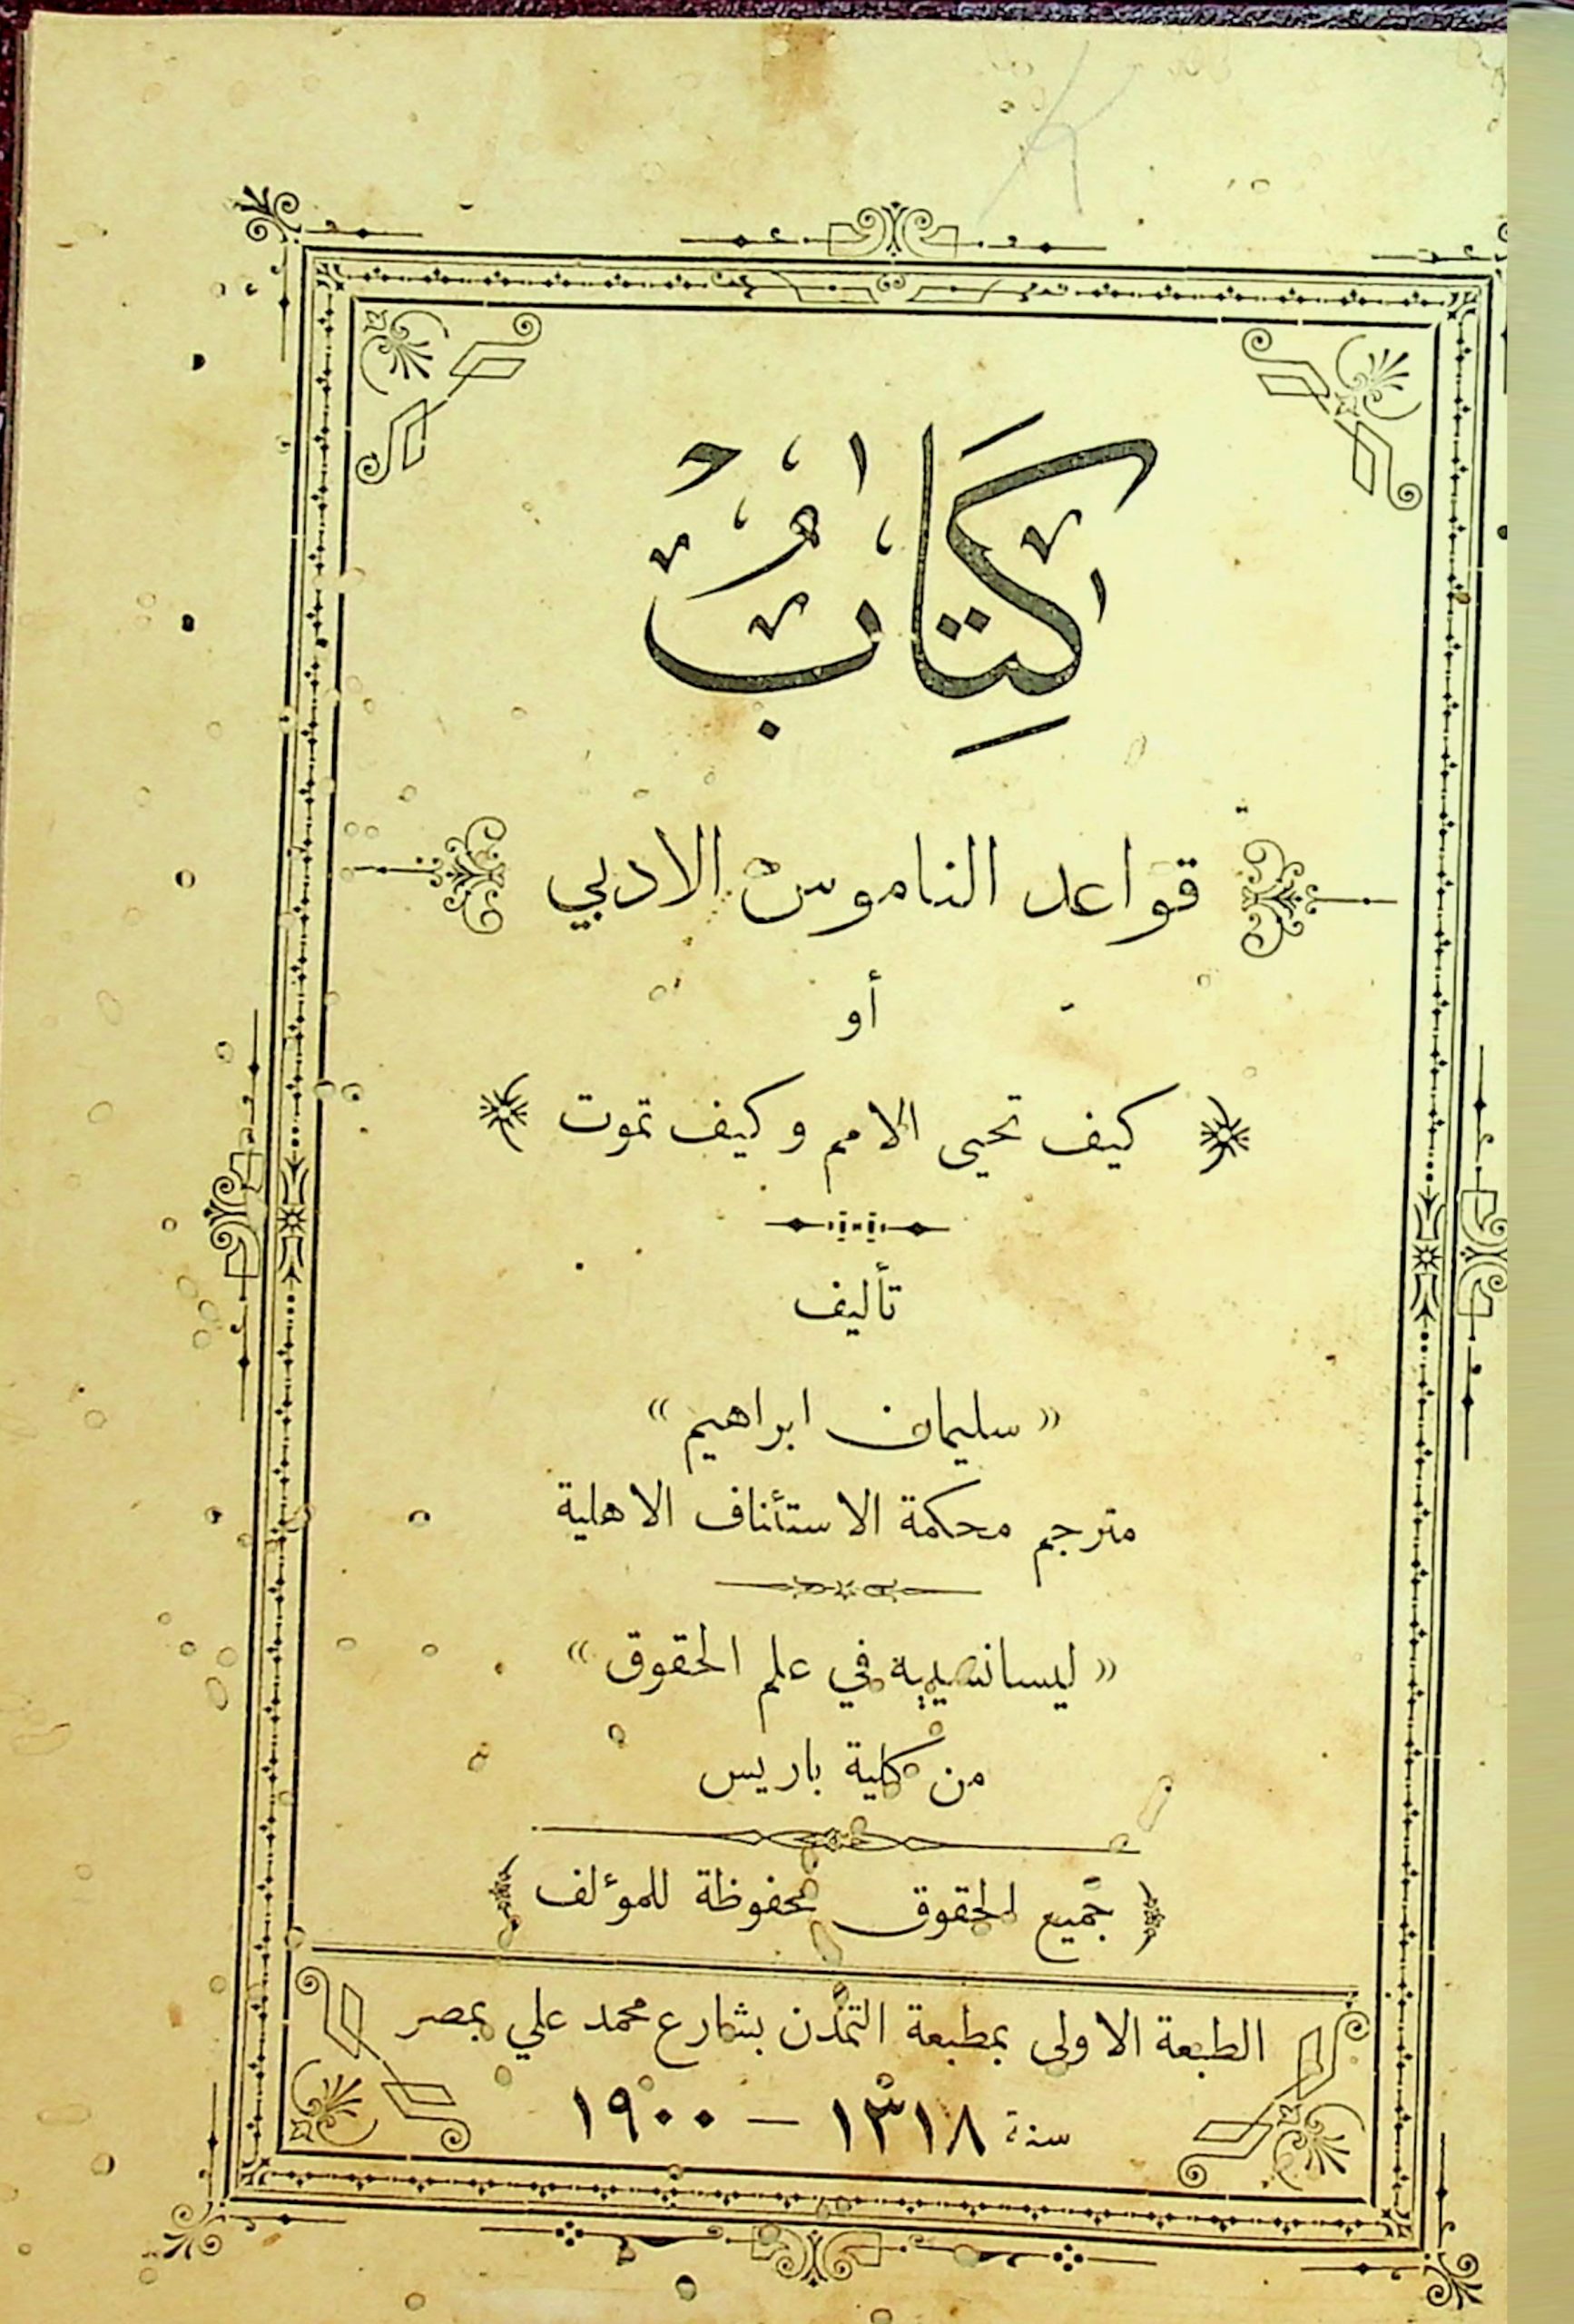 كِتَابُ
قواعد الناموس الادبي
أو
كيف تحيى الامم وكيف تموت
تأليف
« سليمان ابراهيم »
مترجم محكمة الاستئناف الاهلية
« ليسانسيه في علم الحقوق »
من كلية باريس
جميع الحقوق محفوظة للموٴلف
الطبعة الاولى بمطبعة التمدُّن بشارع محمد علي بمصر
سنة ١٣١٨ — ١٩٠٠